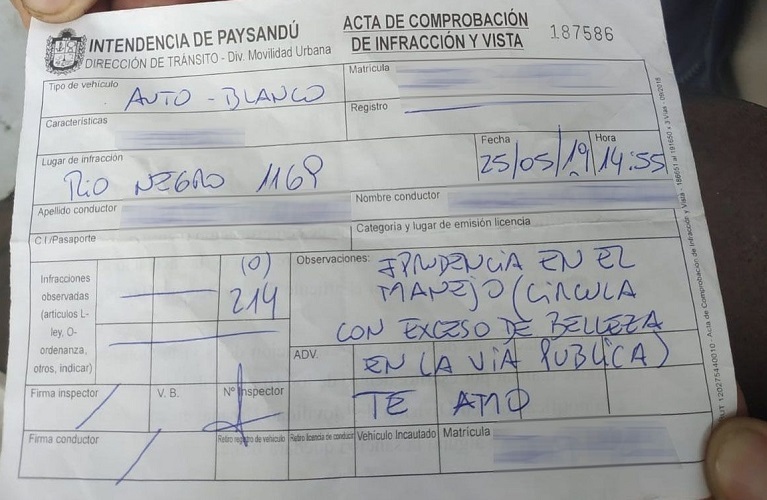 INTENDENCIA DE PAYSANDÚ
DIRECCIÓN DE TRÁNSITO - Div. Movilidad Urbana
ACTA DE COMPROBACIÓN
DE INFRACCIÓN Y VISTA
187586
Tipo de vehículo
AUTO - BLANCO
Matrícula
Características
Registro
Lugar de infracción
RIO NEGRO 1169
Fecha
25/05/19
Hora
14:55
Apellido conductor
Nombre conductor
C I /Pasaporte
Categoria y lugar de emisión licencia
Infracciones
observadas
(artículos L-
ley, O-
ordenanza,
otros, indicar)
(O)
214
Observaciones:
IPRUDENCIA EN EL
MANEJO (CIRCULA
CON EXCESO DE BELLEZA
EN LA VIA PUBLICA)
TE AMO
ADV.
Firma inspector
V. B.
Nº Inspector
Firma conductor
Retiro registro de vehículo
Retiro licencia de conducir
Vehículo Incautado
Matrícula
Acta de Comprobación de Infracción y Vista